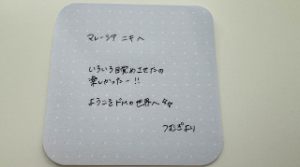 マレーシア ニキへ
いろいろ目覚めさせたの
楽しかったー!!
ようこそドMの世界へ
つむぎより